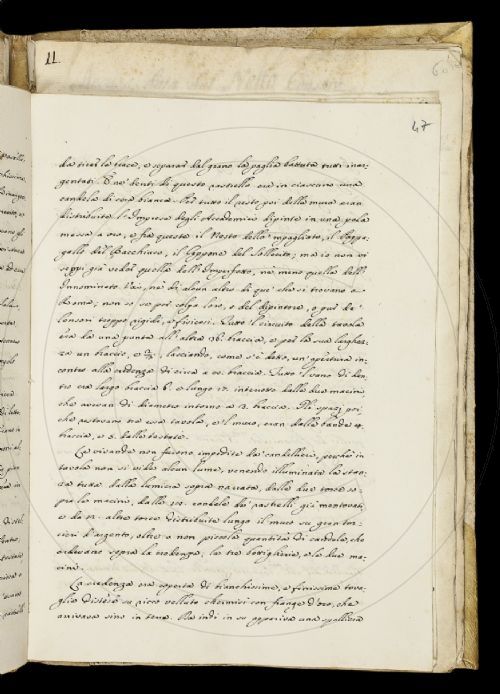 11.
47
da tirar la brace, e separar dal grano la paglia battuta tutti inar-
gentati. E ne' denti di questo rastrello era in ciascuno una
candela di cera bianca. Nel tutto il resto poi della mura eran
distribuite l'Imprese degli Accademici dipinte in una pala
messa a oro, e fra queste il Nesto dello 'mpagliato, il Cappe-
gallo dell' il Cappone del Sollecito, ma io non vi
seppi già veder quella dell' Imperfetto, nè meno quella dell'
Innominato nè di alcun altro di que' che si trovano a
Roma; non so se per colpa loro, o del dipintore, o pur de'
Censori troppo rigidi, e fisicosi. Tutto l'circuito della tavola
era da una punta all' altra 36. braccia, e per la sua larghez-
za un braccio, e lasciando, come s'è detto, un' apertura in-
contro alla credenza di circa a braccia. Tutto l'vano di den-
tro era largo braccia 6. e lungo 12. interrotto dalle due macine
che avevan di diametro intorno a 3. braccia. Gli spazi poi
che restavano tra essa tavola, e 'l muro, eran dalle bande 4
braccia, e 5. dalle testate.
Le vivande non furono impedite da' candellieri, perchè in
tavola non si vide alcun lume, venendo illuminata la stan-
za tutta dalla lumiera sopra narrata, dalle due torce so-
pra le macine, dalle candele de' rastrelli già mentovati
e da 12. altre torce distribuite lungo il muro su gran tor-
cieri d'argento, oltre a non piccola quantità di candele, che
ardevano sopra la credenza, le tre bottiglierie, e le due ma-
cine.
La credenza era coperta di bianchissime, e finissime tova-
glie distese su ricco vellato chermisi con frange d'oro, che
arrivava sino in terra. Da indi in su appariva una spalliera